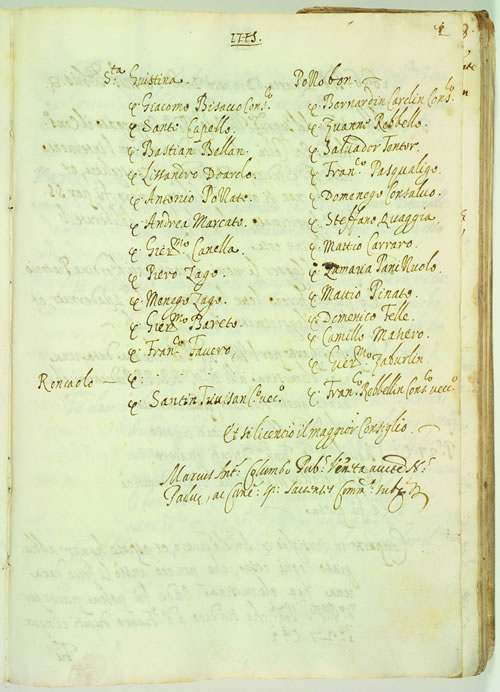 1715.
1
S.ta Giustina
Giacomo Bisacco Cons.o
Santo Capello.
Bastian Bellan.
Lissandro Doardo.
Antonio Pollato.
Andrea Marcato.
Gier.mo Canella.
Piero Zago.
Monego Zago.
Gier.mo Bareto.
Fran.co Favero,
Roncaolo —
Santin Trivisan C.o vec.o
Pollobon.
Bernardin Carlin Cons.o
Zuanne Rebbello.
Salvador Tentor.
Fran.co Pasqualigo.
Domenego Consaluo.
Steffano Quaggia.
Mattio Carraro.
Zamaria Pani Nuolo.
Mattio Pinato.
Domenico Felle.
Camillo Masiero.
Gier.mo Zaburlin
Fran.co Rebbellin Cons.o vec.o
Et si licentiò il maggior Consiglio.
Marcus Ant.s Columbo Pub.s
Paduæ, ac Canc.s